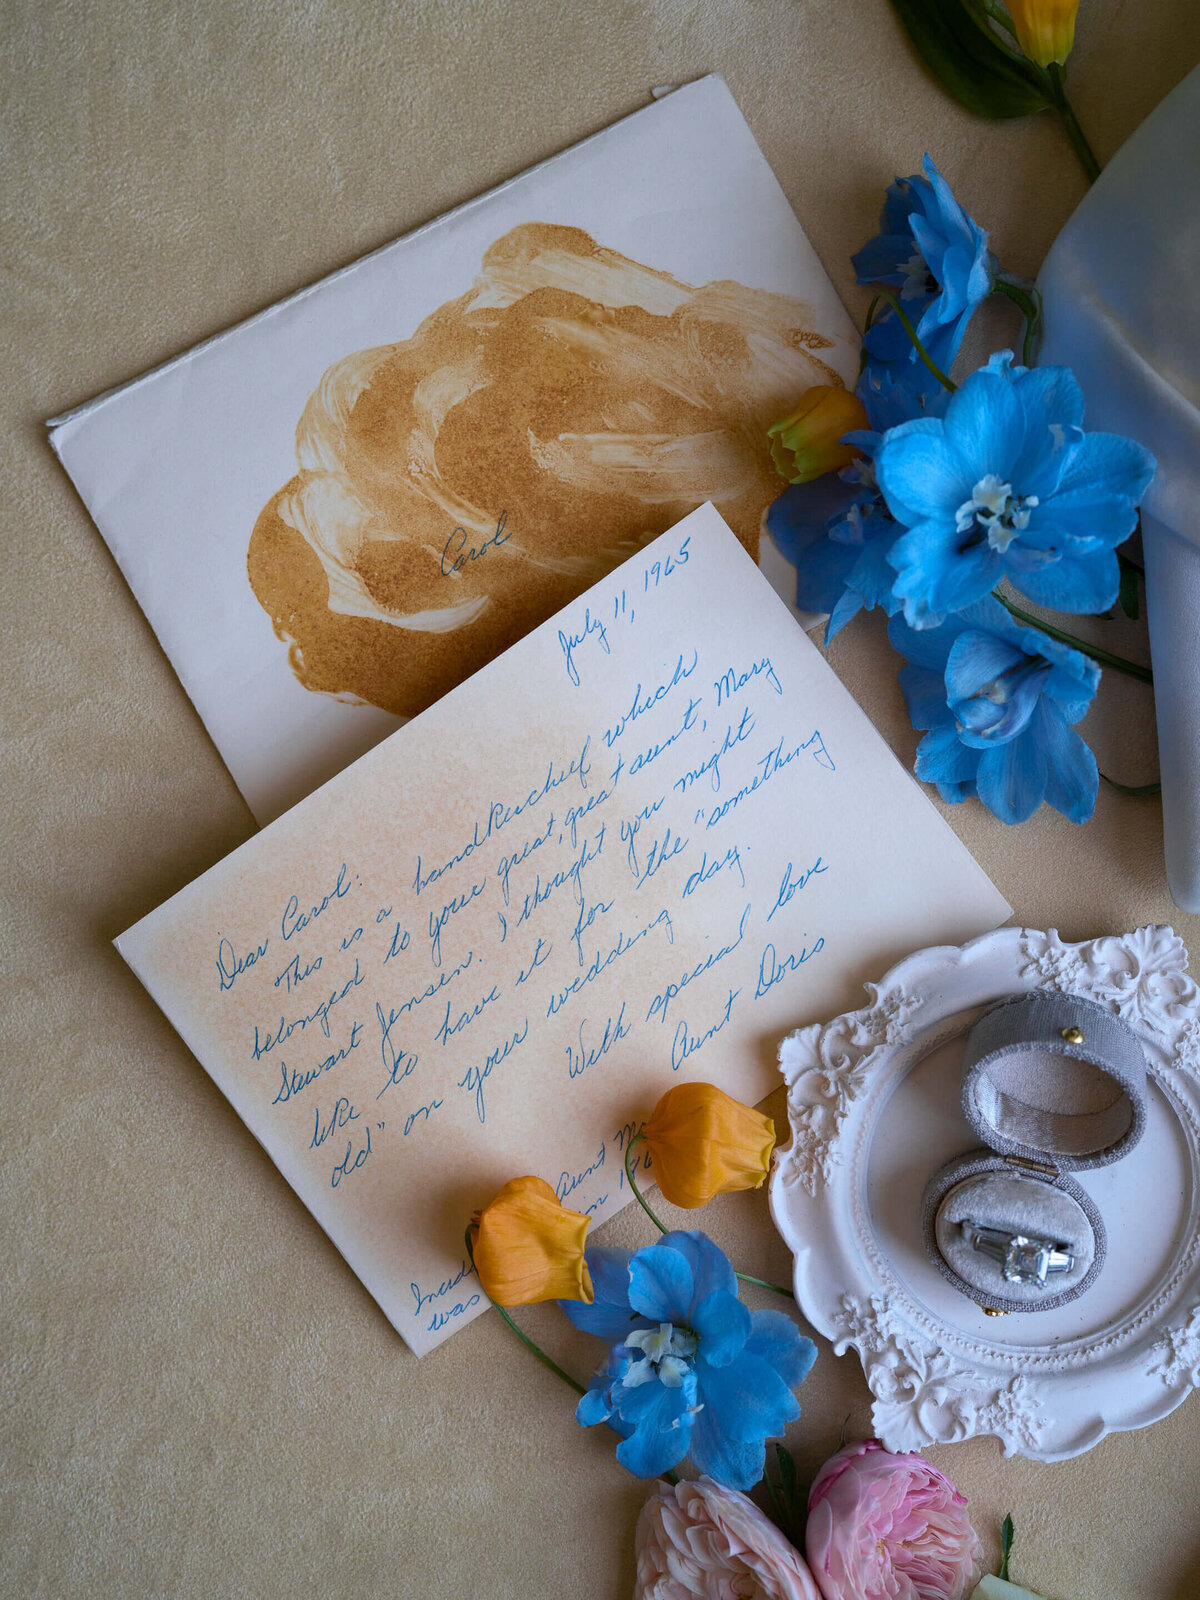 Carol
July 11, 1965
Dear Carol:
This is a handkerchief which
belonged to your great, great aunt, Mary
Stewart Jensen. I thought you might
like to have it for the "something
old" on your wedding day.
With special love
Aunt Doris
Aunt
was in